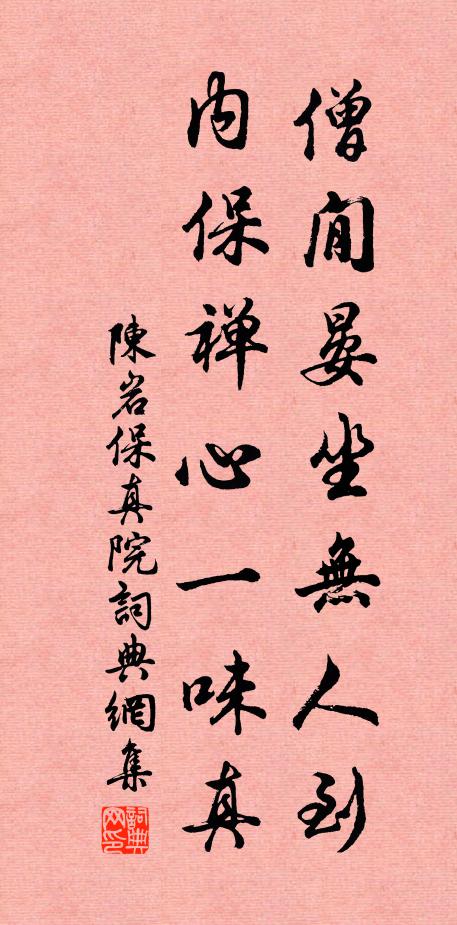 僧閒晏坐無人到
内保禅心一味真
陳岩保真院詞典網集
詞典
网印